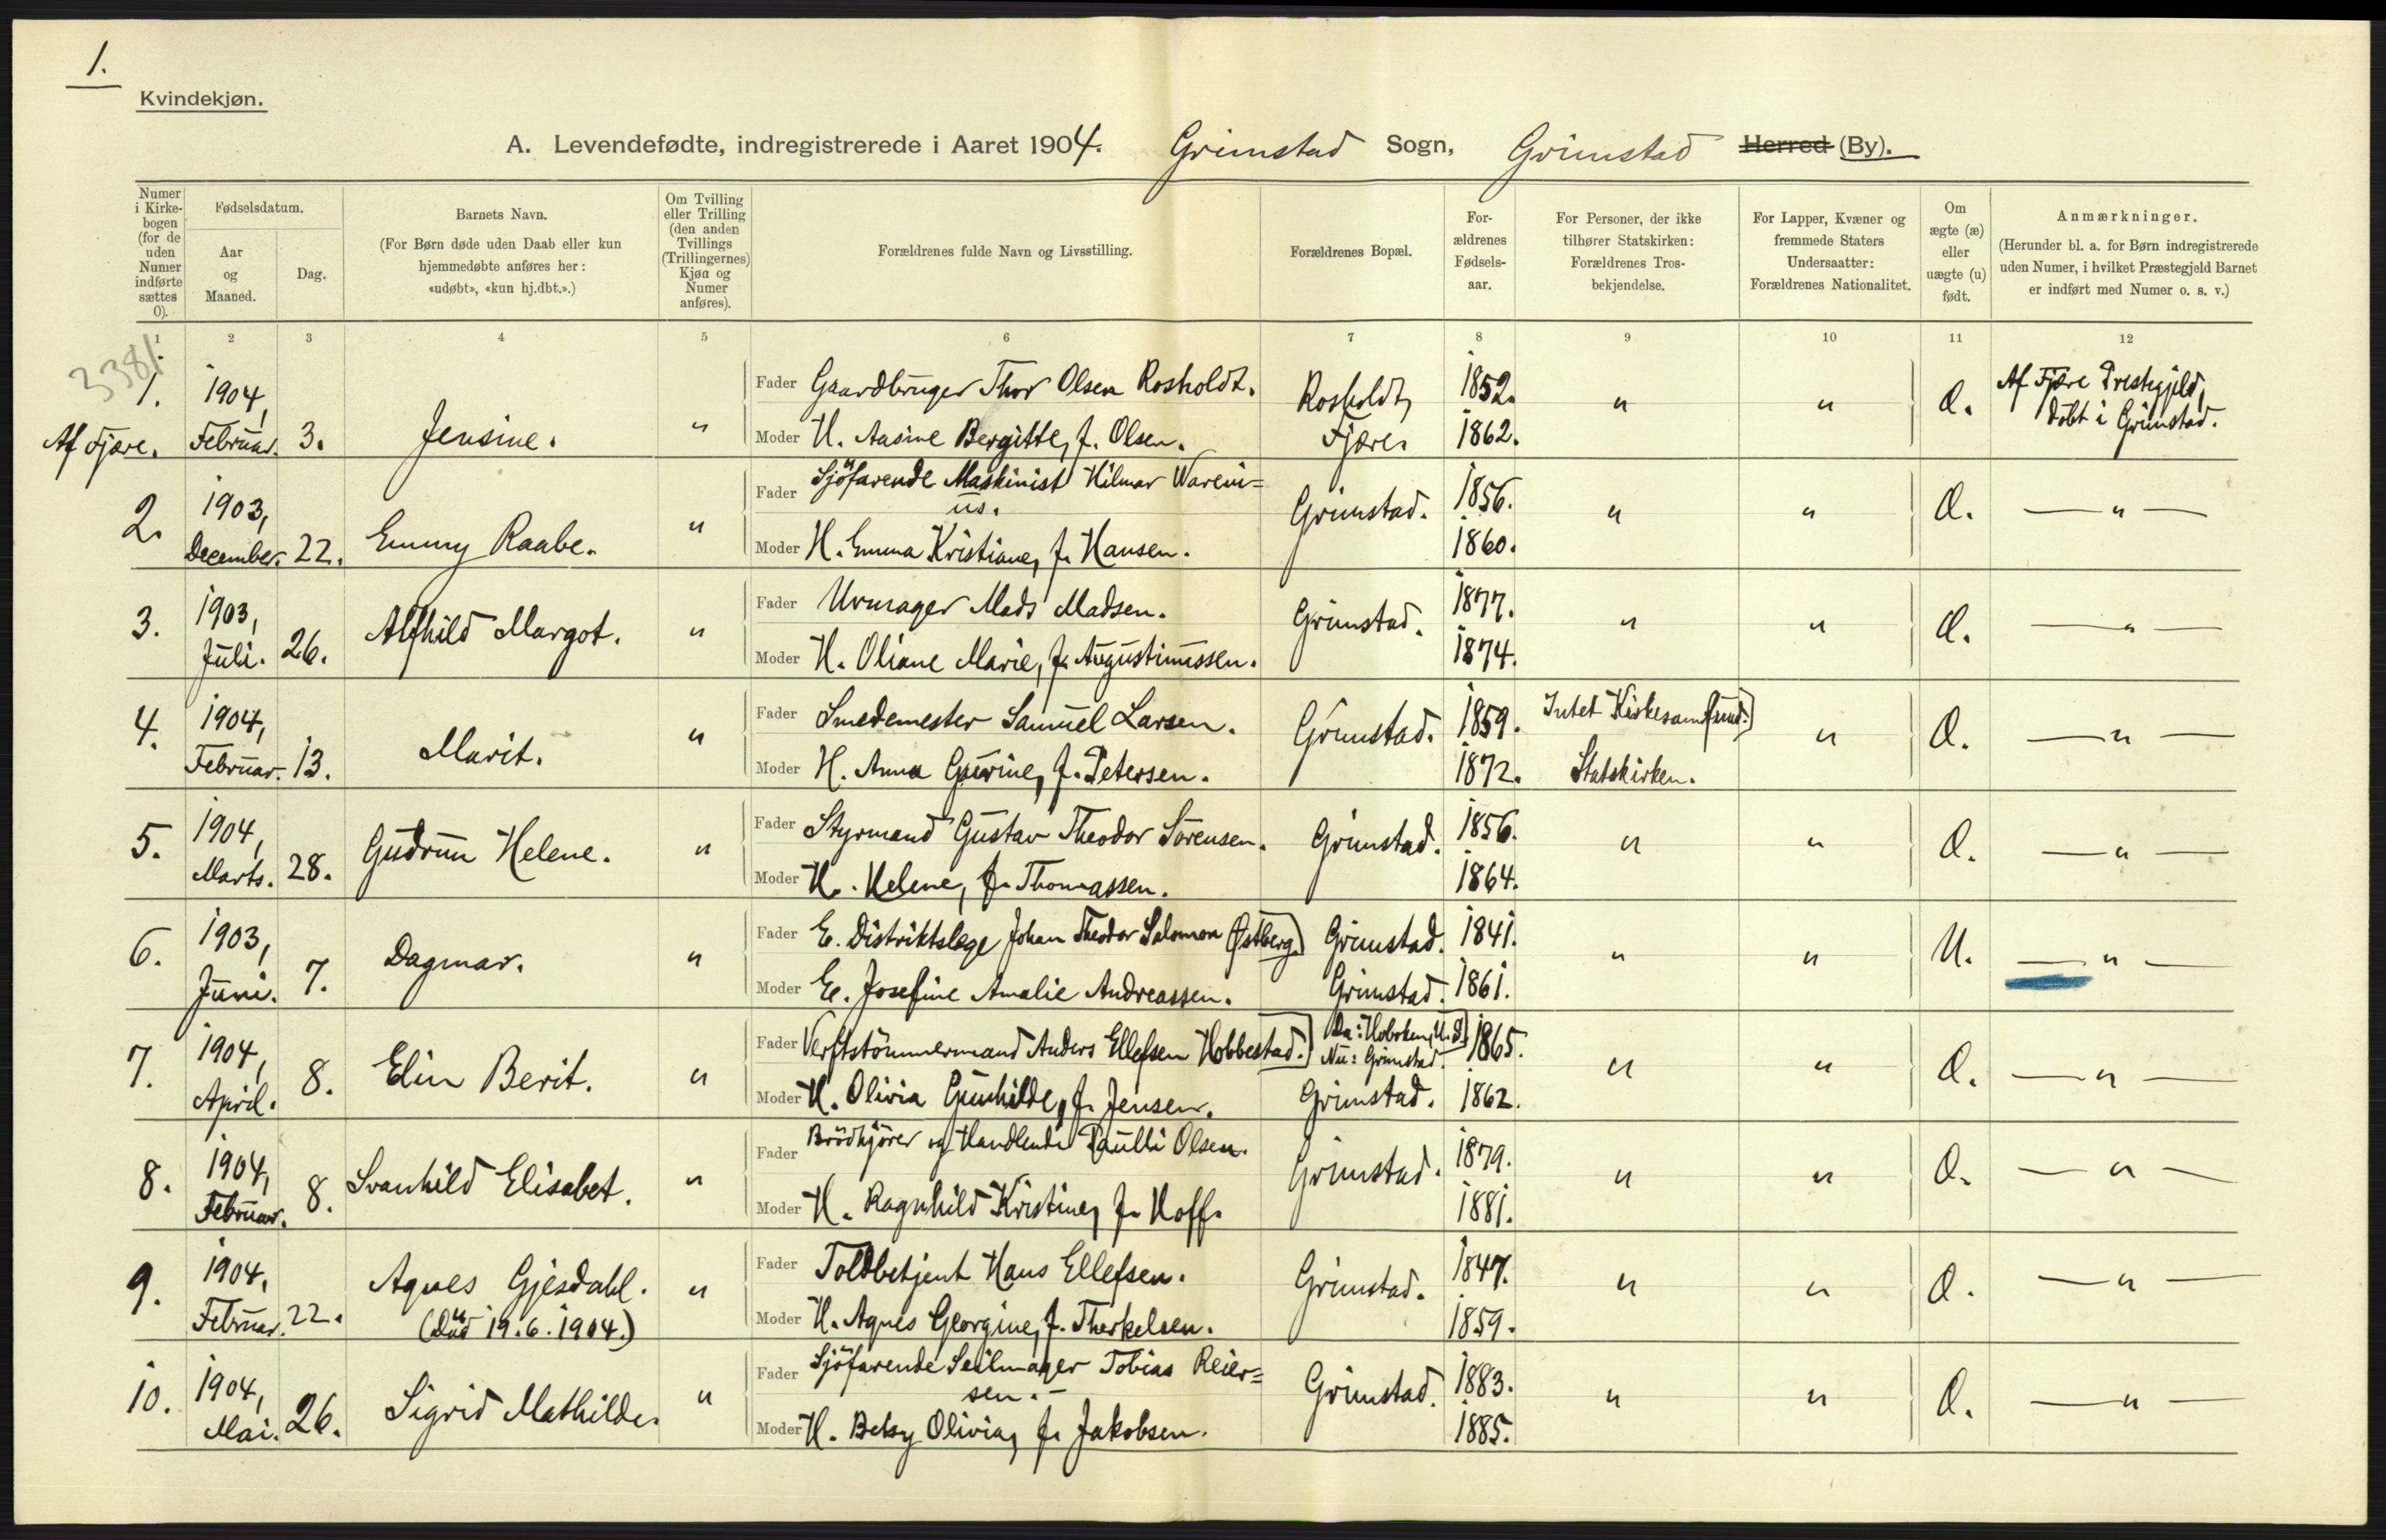 1.
Kvindekjøn.
A. Levendefødte, indregistrerede i Aaret 1904. Grimstad Sogn, Grimstad Herred (By).
Numer i Kirkebogen (for de uden Numer indførte sættes 0).
Fødselsdatum.
Aar og Maaned.
Dag.
Barnets Navn.
(For Børn døde uden Daab eller kun hjemmedøbte anføres her: «udøbt», «kun hj.dbt.».)
Om Tvilling eller Trilling (den anden Tvillings (Trillingernes) Kjøn og Numer anføres).
Forældrenes fulde Navn og Livsstilling.
Forældrenes Bopæl.
Forældrenes Fødselsaar.
For Personer, der ikke tilhører Statskirken: Forældrenes Trosbekjendelse.
For Lapper, Kvæner og fremmede Staters Undersaatter: Forældrenes Nationalitet.
Om ægte (æ) eller uægte (u) født.
Anmærkninger.
(Herunder bl. a. for Børn indregistrerede uden Numer, i hvilket Præstegjeld Barnet er indført med Numer o. s. v.)
1 2 3 4 5 6 7 8 9 10 11 12
3381
1. Af Fjære. 1904, Februar. 3. Jensine. "
Fader Gaardbruger Thor Olsen Rosholdt. Rosholdt, 1852. " " Æ. Af Fjære Prestegjeld,
Moder H. Aasine Bergitte, f. Olsen. Fjære. 1862. döbt i Grimstad.
2. 1903, December. 22. Emmy Raabe. "
Fader Sjöfarende Maskinist Hilmar Wareni=
us. Grimstad. 1856. " " Æ. — " —
Moder H. Emma Kristiane, f. Hansen. 1860.
3. 1903, Juli. 26. Alfhild Margot. "
Fader Urmager Mads Madsen. Grimstad. 1877. " " Æ. — " —
Moder H. Oliane Marie, f. Augustinussen. 1874.
4. 1904, Februar. 13. Marit. "
Fader Smedemester Samuel Larsen. Grimstad. 1859. Intet Kirkesamfund. " Æ. — " —
Moder H. Anna Gurine, f. Petersen. 1872. Statskirken.
5. 1904, Marts. 28. Gudrun Helene. "
Fader Styrmand Gustav Theodor Sörensen. Grimstad. 1856. " " Æ. — " —
Moder H. Helene, f. Thomassen. 1864.
6. 1903, Juni. 7. Dagmar. "
Fader E. Distriktslæge Johan Theodor Salomon Østberg. Grimstad. 1841. " " U. — " —
Moder E. Josefine Amalie Andreassen. Grimstad. 1861.
7. 1904, April. 8. Elin Berit. "
Fader Verftstömmermand Anders Ellefsen Hobbestad. Da: Hoboken, U.S. Nu: Grimstad. 1865. " " Æ. — " —
Moder H. Olivia Gunhilde, f. Jensen. Grimstad. 1862.
8. 1904, Februar. 8. Svanhild Elisabet. "
Fader Brödkjörer og Handlende Paulli Olsen. Grimstad. 1879. " " Æ. — " —
Moder H. Ragnhild Kristine, f. Hoff. 1881.
9. 1904, Februar. 22. Agnes Gjesdahl. "
(Död 19.6.1904.)
Fader Toldbetjent Hans Ellefsen. Grimstad. 1847. " " Æ. — " —
Moder H. Agnes Georgine, f. Therkelsen. 1859.
10. 1904, Mai. 26. Sigrid Mathilde. "
Fader Sjöfarende Seilmager Tobias Reier=
sen. — Grimstad. 1883. " " Æ. — " —
Moder H. Betsy Olivia, f. Jakobsen. 1885.